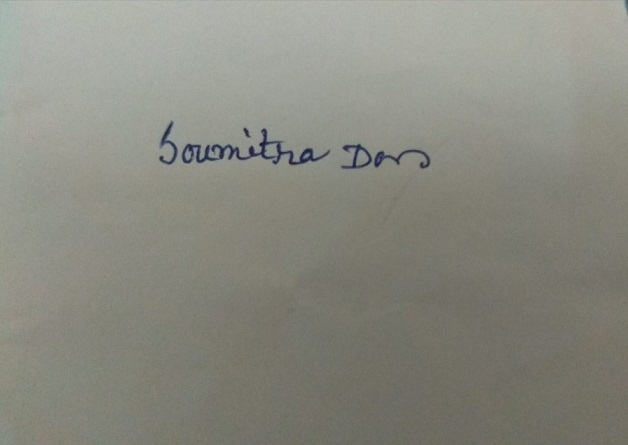 Soumitra Das